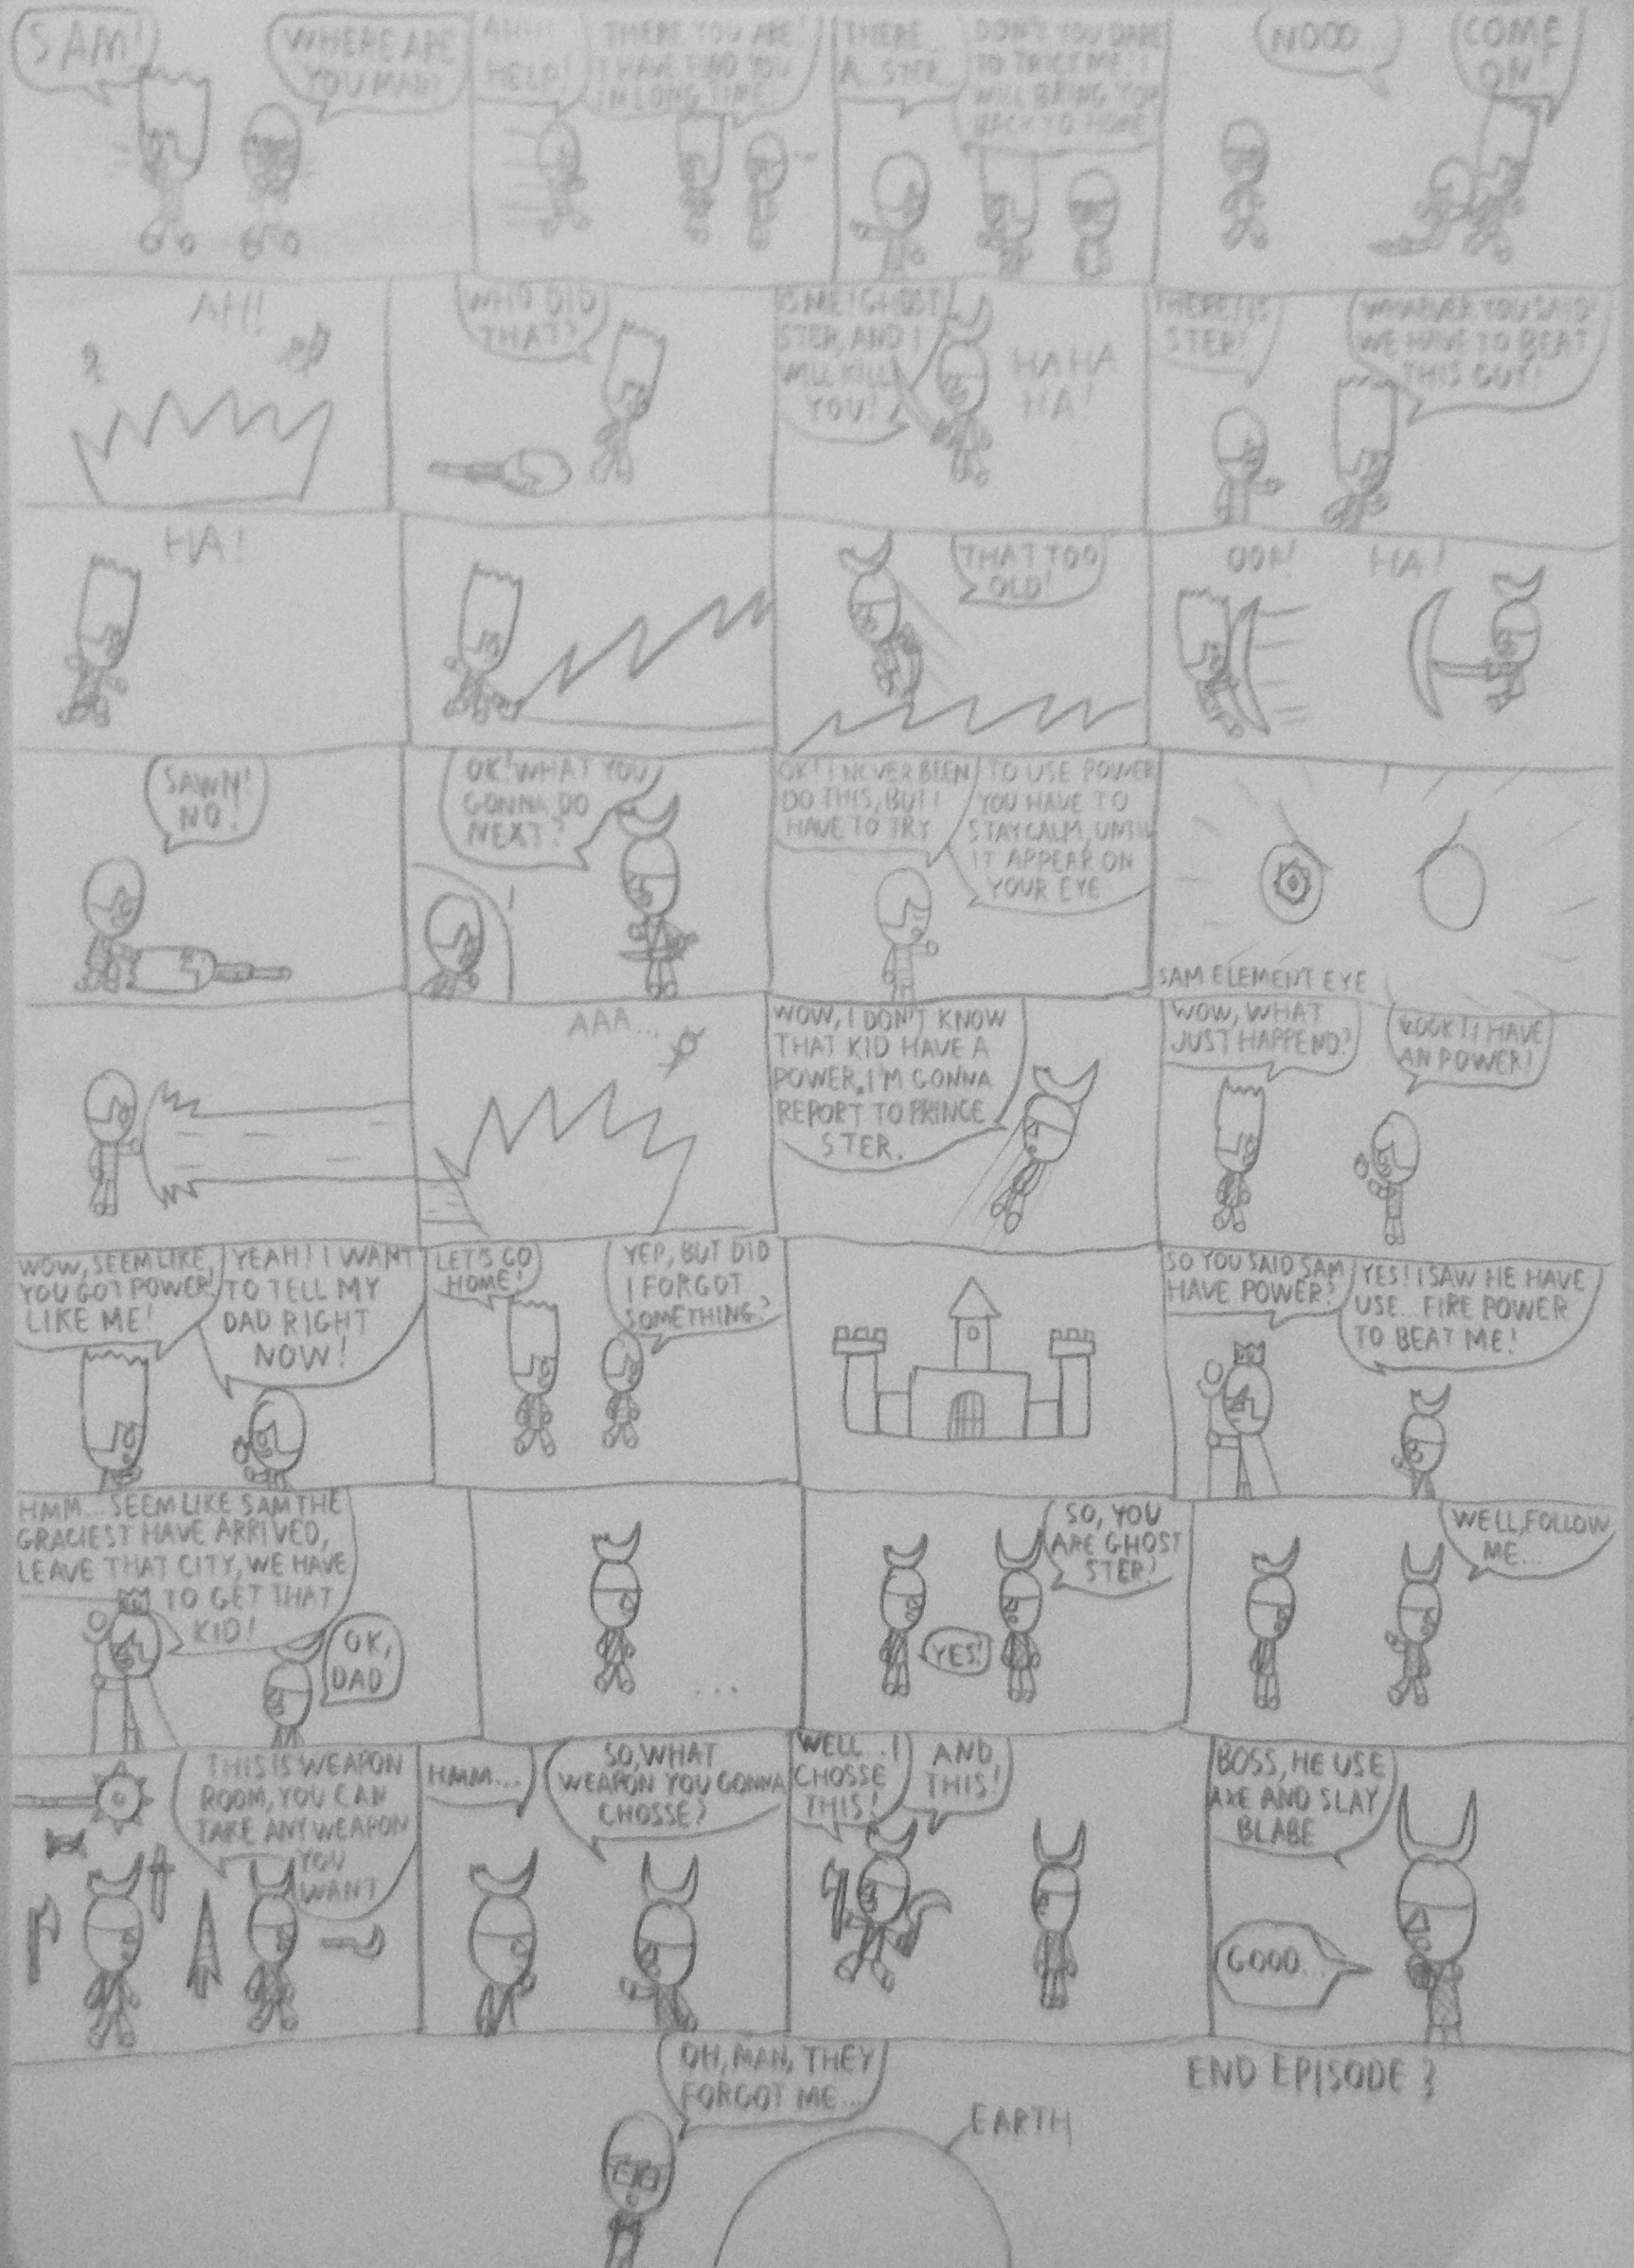 SAM!
WHERE ARE
YOU MAN?
AHH!
HELP!
THERE YOU ARE!
I HAVE FIND YOU
IN LONG TIME!
THERE...
A.. STER..
DON'T YOU DARE
TO TRICK ME! I
WILL BRING YOU
BACK TO HOME!
NOOO...
COME
ON!
AH!
WHO DID
THAT?
IS ME! GHOST
STER, AND I
WILL KILL
YOU!
HA HA
HA!
THERE! IS
STER!
YOU SAID!
WE HAVE TO BEAT
THIS GUY!
HA!
THAT TOO
OLD!
OOF!
HA!
SAWM!
NO!
OK! WHAT YOU
GONNA DO
NEXT?
!
OK! I NEVER BEEN
DO THIS, BUT I
HAVE TO TRY
TO USE POWER
YOU HAVE TO
STAY CALM, UNTIL
IT APPEAR ON
YOUR EYE
SAM ELEMENT EYE
AAA...
WOW, I DON'T KNOW
THAT KID HAVE A
POWER. I'M GONNA
REPORT TO PRINCE
STER.
WOW, WHAT
JUST HAPPEND?
LOOK! I HAVE
AN POWER!
WOW, SEEM LIKE
YOU GOT POWER
LIKE ME!
YEAH! I WANT
TO TELL MY
DAD RIGHT
NOW!
LET'S GO
HOME!
YEP, BUT DID
I FORGOT
SOMETHING?
SO YOU SAID SAM
HAVE POWER?
YES! I SAW HE HAVE
USE... FIRE POWER
TO BEAT ME!
HMM... SEEM LIKE SAM THE
GRACIEST HAVE ARRIVED,
LEAVE THAT CITY, WE HAVE
TO GET THAT
KID!
OK,
DAD
...
SO, YOU
ARE GHOST
STER?
YES!
WELL, FOLLOW
ME...
THIS IS WEAPON
ROOM, YOU CAN
TAKE ANY WEAPON
YOU
WANT
HMM...
SO, WHAT
WEAPON YOU GONNA
CHOSSE?
WELL... I
CHOSSE
THIS!
AND
THIS!
BOSS, HE USE
AXE AND SLAY
BLABE
GOOD...
OH, MAN, THEY
FORGOT ME...
EARTH
END EPISODE 3